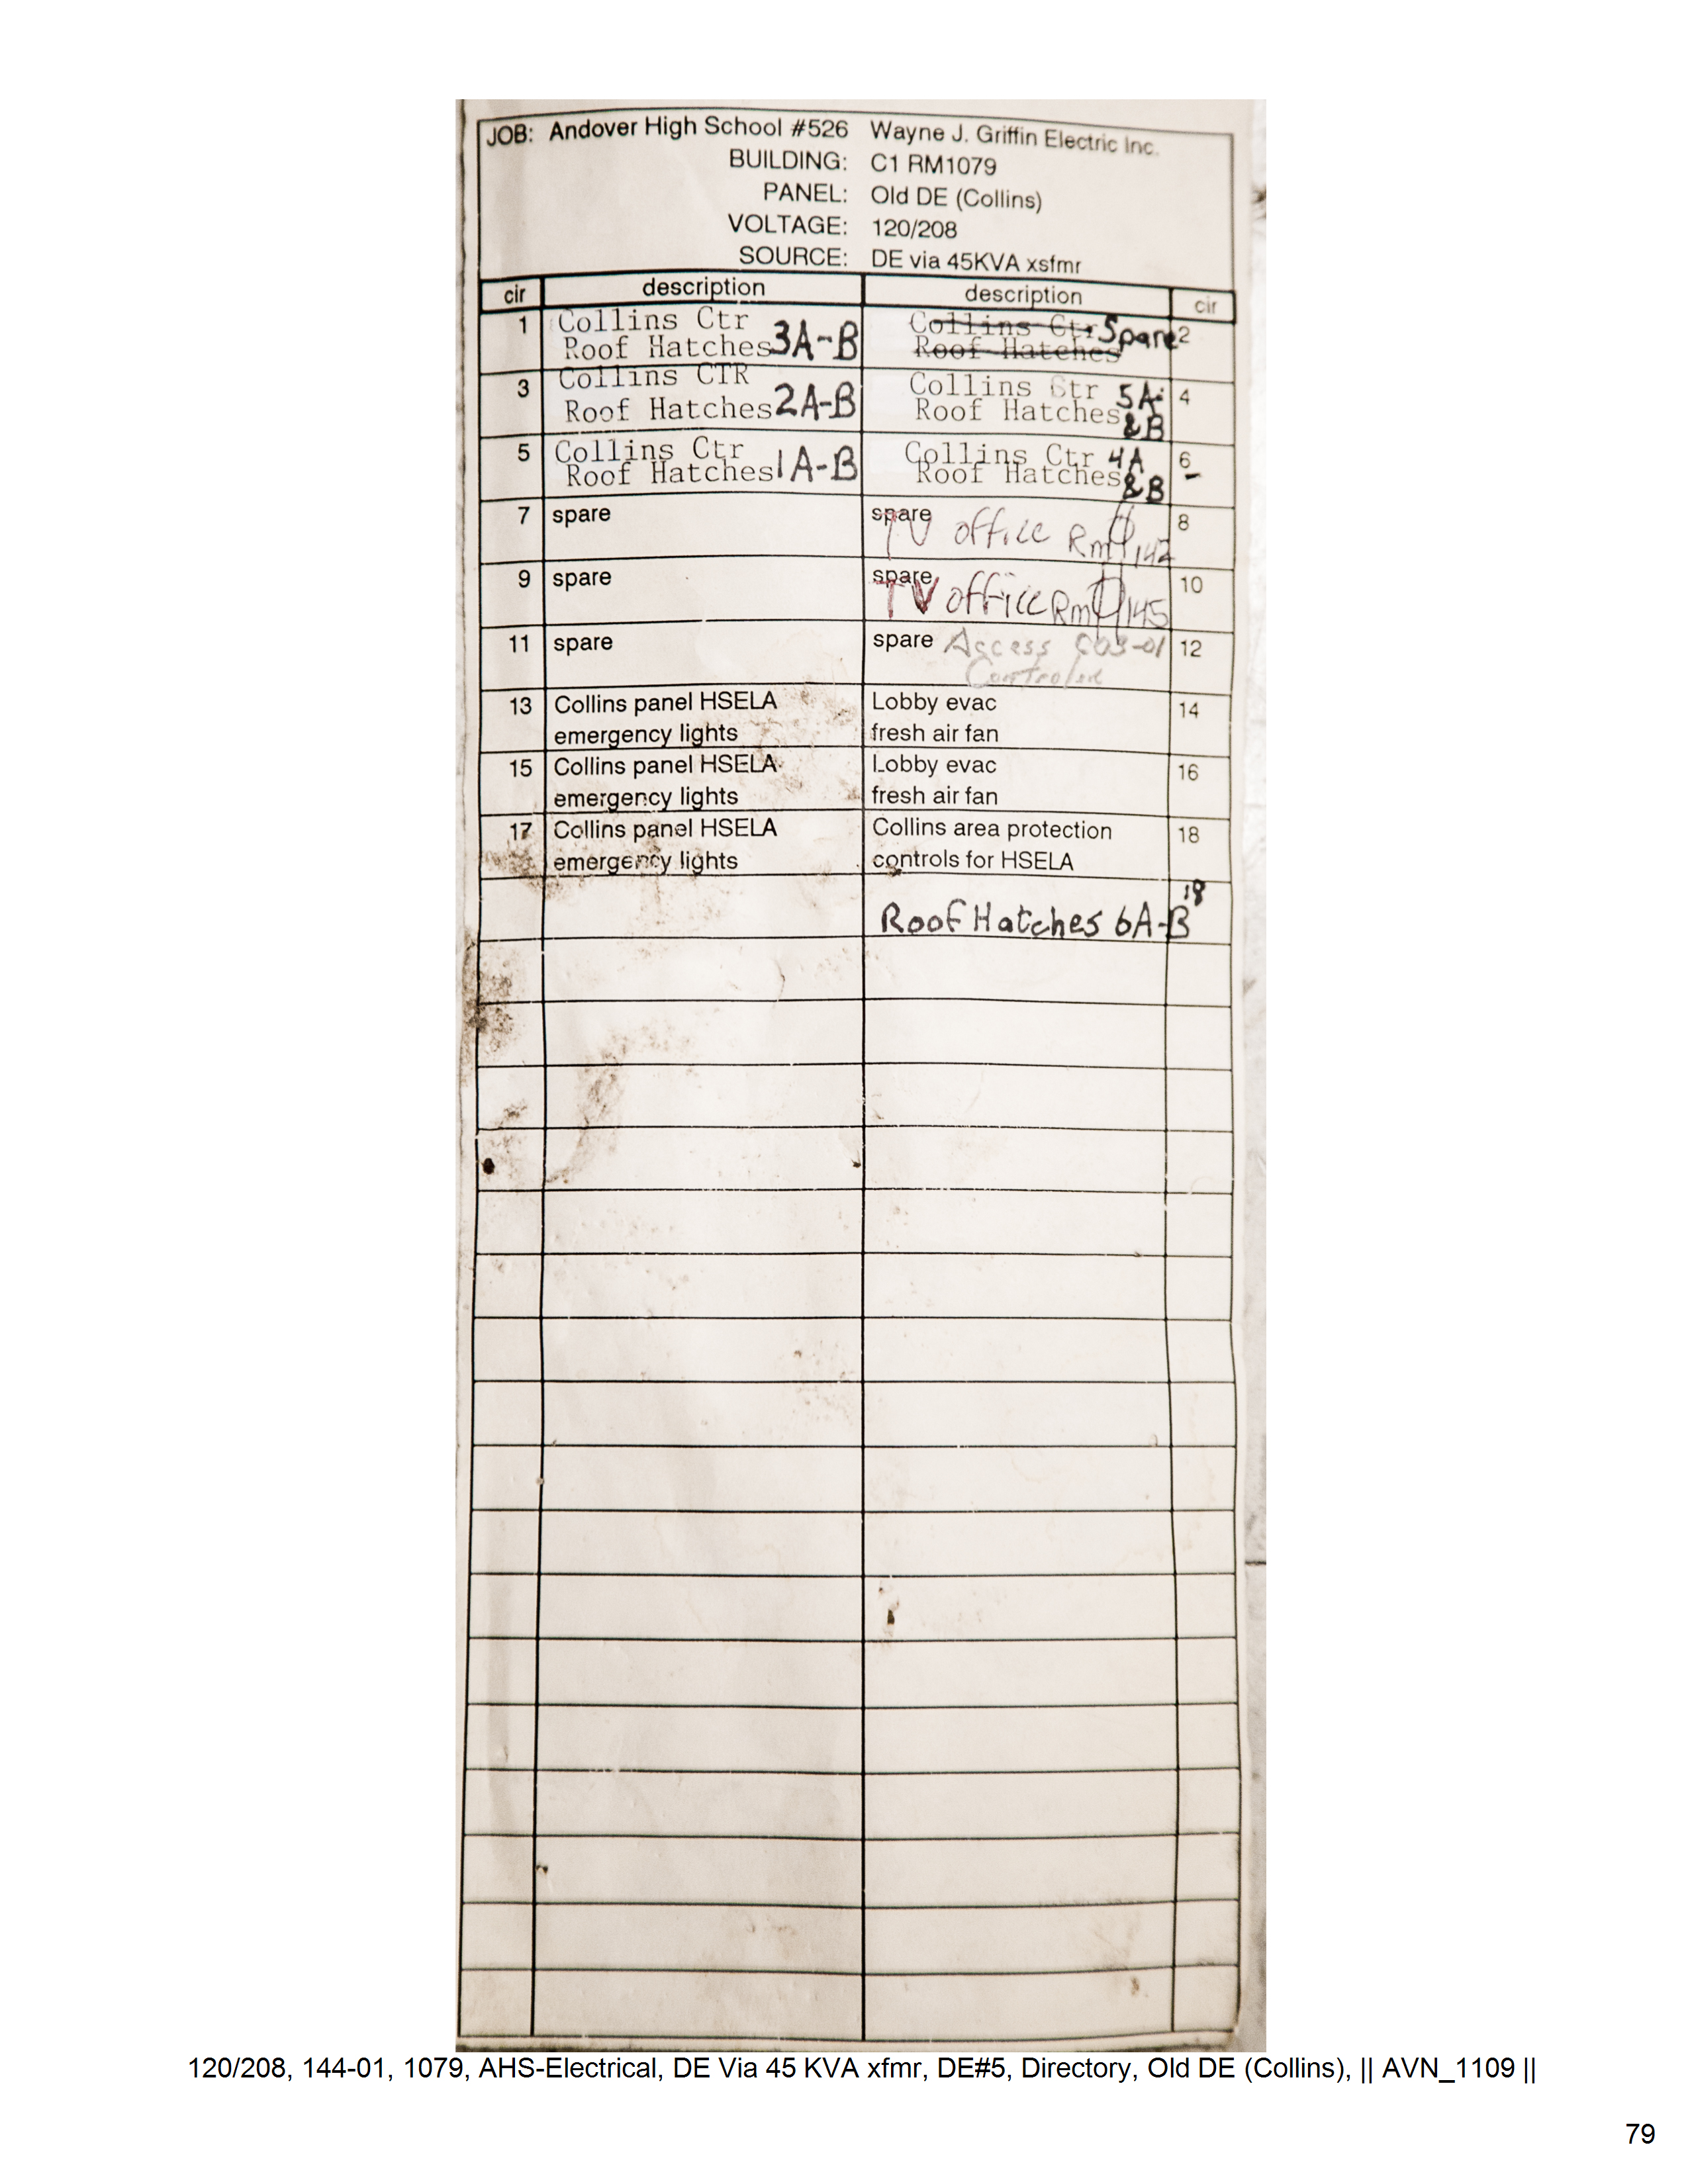 JOB: Andover High School #526 Wayne J. Griffin Electric Inc.
BUILDING: C1 RM1079
PANEL: Old DE (Collins)
VOLTAGE: 120/208
SOURCE: DE via 45KVA xsfmr
cir description description cir
1 Collins Ctr Roof Hatches 3A-B
Collins Ctr Roof Hatches Spare 2
3 Collins CTR Roof Hatches 2A-B
Collins Str Roof Hatches 5A & B 4
5 Collins Ctr Roof Hatches 1A-B
Collins Ctr Roof Hatches 4A & B 6
7 spare
spare TV office Rm 142 8
9 spare
spare TV office Rm 145 10
11 spare
spare Access 12
13 Collins panel HSELA
emergency lights
Lobby evac 14
fresh air fan
15 Collins panel HSELA
emergency lights
Lobby evac 16
fresh air fan
17 Collins panel HSELA
emergency lights
Collins area protection 18
controls for HSELA
Roof Hatches 6A-B 18
120/208, 144-01, 1079, AHS-Electrical, DE Via 45 KVA xfmr, DE#5, Directory, Old DE (Collins), || AVN_1109 ||
79